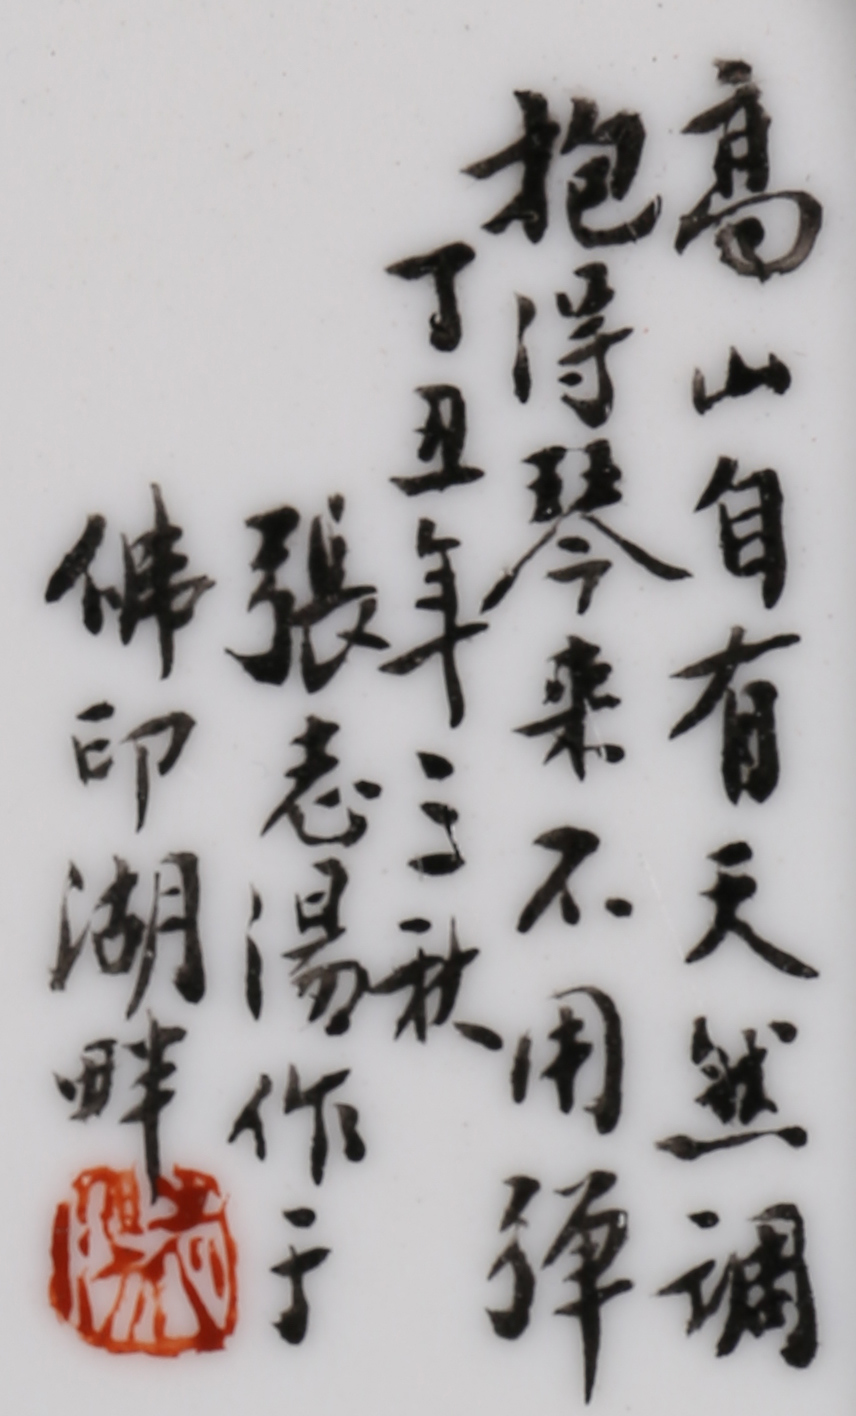 高山自有天然調
抱得琴来不用彈
丁丑年之秋
張志湯作于
佛印湖畔